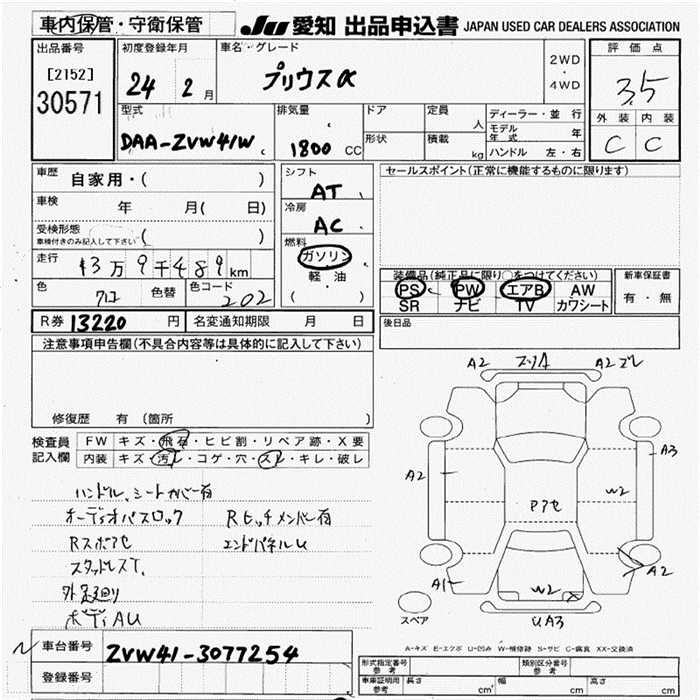 車内保管・守衛保管
JU 愛知 出品申込書 JAPAN USED CAR DEALERS ASSOCIATION
出品番号
[2152]
30571
初度登録年月
24 年 2 月
車名・グレード
プリウスα
2WD
・
4WD
評価点
3.5
外装 内装
C C
型式
DAA-ZVW41W
排気量
1800 CC
ドア
形状
定員 人
積載 kg
ディーラー・並行
モデル年式 年
ハンドル 左・右
車歴 自家用・( )
車検 年 月( 日)
受検形態
車検付きのみ記入して下さい ( )
走行 13万9千489km
色 色替 色コード 202
シフト
AT
冷房
AC
燃料
ガソリン
軽・油
( )
セールスポイント(正常に機能するものに限ります)
装備品(純正品に限り〇をつけてください)
PS PW エアB AW
SR ナビ TV カワシート
新車保証書
有・無
後日品
R券 13220 円 名変通知期限 月 日
注意事項申告欄(不具合内容等は具体的に記入して下さい)
修復歴 有 (箇所 )
検査員記入欄
FW キズ・飛石・ヒビ割・リペア跡・X要
内装 キズ・汚レ・コゲ・穴・スレ・キレ・破レ
ハンドル、シートカバー有
オーディオパスロック Rヒッチメンバー有
エンドパネルU
スタッドレスT.
ボディAU
A2 A2ズレ
A2 A3
W2
Pアセ
A1 W2 A2
スペア UA3
A-キズ E-エクボ U-凹み W-補修跡 S-サビ C-腐食 XX-交換済
車台番号 ZVW41-3077254
登録番号
形式指定番号 参考 類別区分番号 参考
車庫証明用 参考 長さ cm 幅 cm 高さ cm